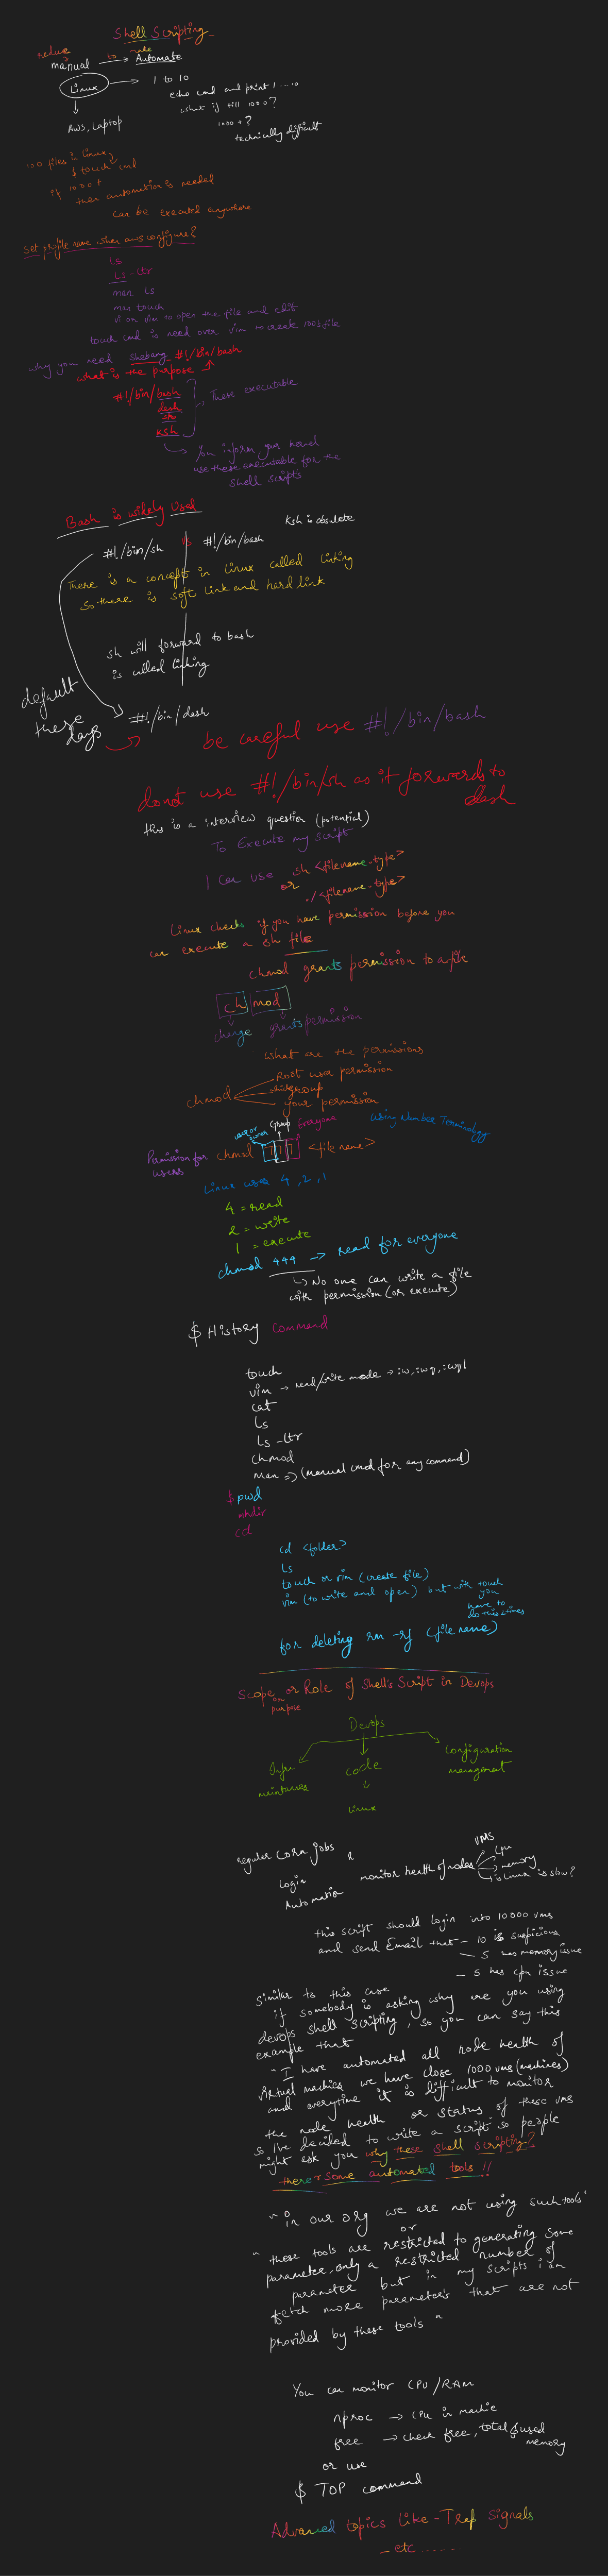 Shell Scripting
reduce
manual to make Automate
Linux → 1 to 10
echo cmd and print 1....10
what if till 1000?
1000+?
technically difficult
AWS, Laptop
100 files in linux
$ touch cmd
if 1000+
then automation is needed
can be executed anywhere
set profile name when aws configure?
ls
ls -ltr
man ls
man touch
vi or vim to open the file and edit
touch cmd is need over vim to create 100s file
why you need shebang #!/bin/bash
what is the purpose
#!/bin/bash
dash
ksh
These executable
You inform your kernel
use these executable for the
shell scripts
Bash is widely used
ksh is obsolete
#!/bin/sh vs #!/bin/bash
There is a concept in linux called linking
so there is soft link and hard link
sh will forward to bash
is called linking
default
these
days
#!/bin/dash
be careful use #!/bin/bash
donot use #!/bin/sh as it forwards to
dash
this is a interview question (potential)
To Execute my script
I can use sh <filename-type>
or
./<filename-type>
Linux checks if you have permission before you
can execute a sh file
chmod grants permission to a file
ch mod
change grants permission
what are the permissions
chmod
Root user permission
group
your permission
owner Group Everyone
using Number Terminology
Permission for users
chmod 7 7 7 <file name>
Linux uses 4, 2, 1
4 = read
2 = write
1 = execute
chmod 444 → read for everyone
No one can write a file
with permission (or execute)
$ History command
touch
vim → read/write mode → :w, :wq, :wq!
cat
ls
ls -ltr
chmod
man => (manual cmd for any command)
$ pwd
mkdir
cd
cd <folder>
ls
touch or vim (create file)
vim (to write and open) but with touch
you
have to
do this times
for deleting rm -rf (file name)
Scope or Role of Shell's Script in Devops
purpose
Devops
Infra
maintaines
code
Linux
Configuration
management
regular Corn Jobs &
Login
Automation
monitor health of nodes
VMS
Cpu
memory
is linux is slow?
this script should login into 10000 vms
and send Email that – 10 is suspicious
– 5 has memory issue
– 5 has cpu issue
similar to this case
if somebody is asking why are you using
devops shell scripting, so you can say this
example that
"I have automated all node health of
virtual machies we have close 1000 vms (machines)
and everytime it is difficult to monitor
the node health or status of these vms
so I've decided to write a script so people
might ask you why these shell scripting?
there r some automated tools !!
"in our org we are not using such tools"
or
"these tools are restricted to generating some
parameter, only a restricted number of
parameter but in my scripts i am
fetch more parameters that are not
provided by these tools"
You can monitor CPU/RAM
nproc → CPU in machie
free → check free, total & used
memory
or use
$ TOP command
Advanced topics like – Trap Signals
– etc ......